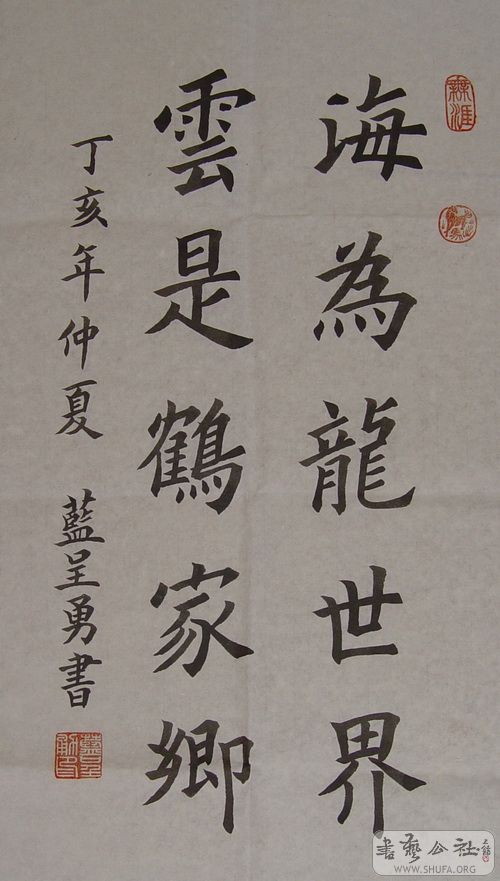 海為龍世界
雲是鶴家鄉
丁亥年仲夏 藍呈勇書
無涯
書藝公社
WWW.SHUFA.ORG